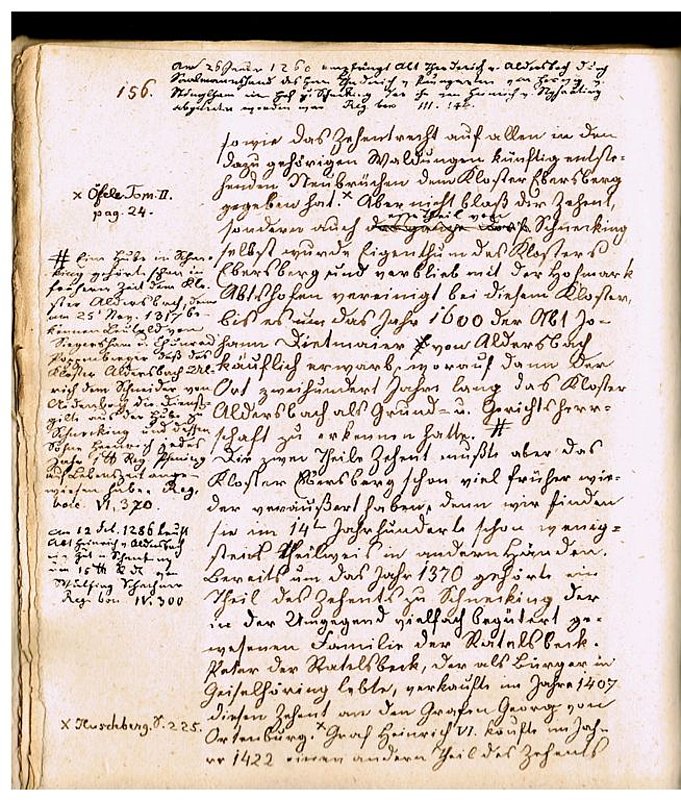 156.
Am 26 Jänner 1260 empfängt Abt Theoderich v. Aldersbach durch
Reg. boic. III. 144.
sowie das Zehentrecht auf allen in den
dazu gehörigen Waldungen künftig entste-
henden Neubrüchen dem Kloster Ebersberg
gegeben hat. x Aber nicht bloß der Zehent,
sondern auch ein Theil von Schnecking
selbst wurde Eigenthum des Klosters
Ebersberg und verblieb mit der Hofmark
Abtshofen vereinigt bei diesem Kloster,
bis es um das Jahr 1600 der Abt Jo-
hann Dietmaier von Aldersbach
käuflich erwarb, worauf dann der
Ort zweihundert Jahre lang das Kloster
Aldersbach als Grund- u. Gerichtsherr-
schaft zu erkennen hatte. #
Die zwei Theile Zehent mußte aber das
Kloster Ebersberg schon viel früher wie-
der veräußert haben, denn wir finden
sie im 14ten Jahrhunderte schon wenig-
stens theilweis in andern Händen.
Bereits um das Jahr 1370 gehörte ein
Theil des Zehents zu Schnecking der
in der Umgegend vielfach begütert ge-
wesenen Familie der Ratelsbeck.
Peter der Ratelsbeck, der als Bürger in
Geiselhöring lebte, verkaufte im Jahre 1407
diesen Zehent an den Grafen Georg von
Ortenburg. x Graf Heinrich VI. kaufte im Jah-
re 1422 einen andern Theil des Zehents
x Öfele Tom. II.
pag. 24.
# Eine Hube in Schne-
cking gehörte schon in
früherer Zeit dem Klo-
ster Aldersbach, denn
am 25 Nov. 1317 be-
kennen
Siegersheim u. Chunrad
daß das
Kloster Aldersbach Ul-
rich dem Schneider von
die Dienst-
gilt aus der Hube zu
Schnecking und dessen
Sohne Heinrich jedes
auf Lebenszeit ange-
wiesen habe. Reg.
boic. VI. 370.
Am 12 Jul. 1286 kauft
Abt Heinrich v. Aldersbach
um 15 lb
Reg. boi. IV. 300
x Huschberg. S. 225.